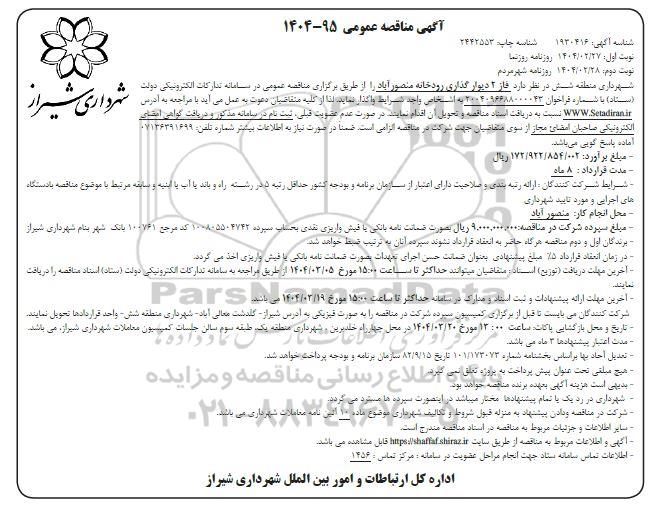 آگهی مناقصه عمومی ۹۵-۱۴۰۴
شناسه آگهی: ۱۹۳۰۴۱۶ شناسه چاپ: ۲۴۴۲۵۵۳
نوبت اول: ۱۴۰۴/۰۲/۲۷ روزنامه روزنما
نوبت دوم: ۱۴۰۴/۰۲/۲۸ روزنامه شهرمردم
شهرداری شیراز
شهرداری منطقه شش در نظر دارد فاز ۲ دیوار گذاری رودخانه منصورآباد را از طریق برگزاری مناقصه عمومی در سامانه تدارکات الکترونیکی دولت
(ستاد) با شماره فراخوان ۲۰۰۴۰۹۶۶۸۸۰۰۰۰۴۳ به اشخاص واجد شرایط واگذار نماید. لذا از کلیه متقاضیان دعوت به عمل می آید با مراجعه به آدرس
WWW.Setadiran.ir نسبت به دریافت اسناد مناقصه و تحویل آن اقدام نمایند. در صورت عدم عضویت قبلی، ثبت نام در سامانه مذکور و دریافت گواهی امضای
الکترونیکی صاحبان امضای مجاز از سوی متقاضیان جهت شرکت در مناقصه الزامی است. ضمنا در صورت نیاز به اطلاعات بیشتر شماره تلفن: ۰۷۱۳۶۳۹۱۶۹۹
آماده پاسخ گویی می‌باشد.
- مبلغ برآورد: ۱۷۲/۹۲۲/۸۵۴/۰۰۲ ریال
- مدت قرارداد : ۸ ماه
- شرایط شرکت کنندگان : ارائه رتبه بندی و صلاحیت دارای اعتبار از سازمان برنامه و بودجه کشور حداقل رتبه ۵ در رشته راه و باند یا آب یا ابنیه و سابقه مرتبط با موضوع مناقصه بادستگاه
های اجرایی و مورد تایید شهرداری
- محل انجام کار: منصور آباد
- مبلغ سپرده شرکت در مناقصه: ۹.۰۰۰.۰۰۰.۰۰۰ ریال بصورت ضمانت نامه بانکی یا فیش واریزی نقدی بحساب سپرده ۱۰۰۸۰۵۵۰۴۷۴۲ کد مرجع ۱۰۰۷۶۱ بانک شهر بنام شهرداری شیراز
- برندگان اول و دوم مناقصه هرگاه حاضر به انعقاد قرارداد نشوند سپرده آنان به ترتیب ضبط خواهد شد.
- در زمان انعقاد قرارداد ۵٪ مبلغ پیشنهادی بعنوان ضمانت حسن اجرای تعهدات بصورت ضمانت نامه بانکی یا فیش واریزی اخذ می گردد.
- آخرین مهلت دریافت (توزیع) اسناد: متقاضیان میتوانند حداکثر تا ساعت ۱۵:۰۰ مورخ ۱۴۰۴/۰۳/۰۵ از طریق مراجعه به سامانه تدارکات الکترونیکی دولت (ستاد) اسناد مناقصه را دریافت
نمایند.
- آخرین مهلت ارائه پیشنهادات و ثبت اسناد و مدارک در سامانه حداکثر تا ساعت ۱۵:۰۰ مورخ ۱۴۰۴/۰۳/۱۹ می باشد.
شرکت کنندگان می بایست تا قبل از برگزاری کمیسیون سپرده شرکت در مناقصه را به صورت فیزیکی به آدرس شیراز- گلدشت معالی آباد- شهرداری منطقه شش- واحد قراردادها تحویل نمایند.
- تاریخ و محل بازگشایی پاکات: ساعت ۱۳:۰۰ مورخ ۱۴۰۴/۰۳/۲۰ در محل چهارراه خلدبرین ، شهرداری منطقه یک، طبقه سوم سالن جلسات کمیسیون معاملات شهرداری شیراز، می باشد.
- مدت اعتبار پیشنهادها ۳ ماه می باشد.
- تعدیل آحاد بها براساس بخشنامه شماره ۱۰۱/۱۷۳۰۷۳ تاریخ ۸۲/۹/۱۵ سازمان برنامه و بودجه پرداخت خواهد شد.
- هیچ مبلغی تحت عنوان پیش پرداخت به پروژه تعلق نمی گیرد.
- بدیهی است هزینه آگهی بعهده برنده مناقصه خواهد بود.
- شهرداری در رد یک یا تمام پیشنهادها مختار میباشد در اینصورت سپرده ها مسترد می گردد.
- شرکت در مناقصه ودادن پیشنهاد به منزله قبول شروط و تکالیف شهرداری موضوع ماده ۱۰ آئین نامه معاملات شهرداری می باشد.
- سایر اطلاعات و جزئیات مربوط به مناقصه در اسناد مناقصه مندرج است.
- آگهی و اطلاعات مربوط به مناقصه از طریق سایت https://shaffaf.shiraz.ir قابل مشاهده می باشد.
- اطلاعات تماس سامانه ستاد جهت انجام مراحل عضویت در سامانه : مرکز تماس : ۱۴۵۶
اداره کل ارتباطات و امور بین الملل شهرداری شیراز